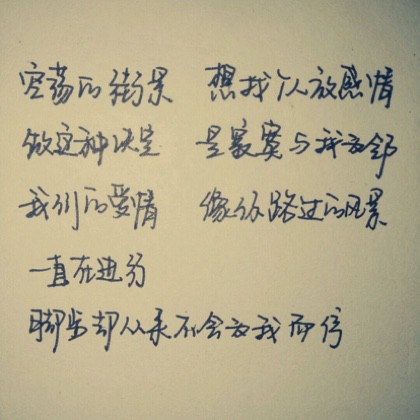 空荡的街景 想找个人放感情
做这种决定 是寂寞与我为邻
我们的爱情 像你路过的风景
一直在进行
脚步却从来不会为我而停